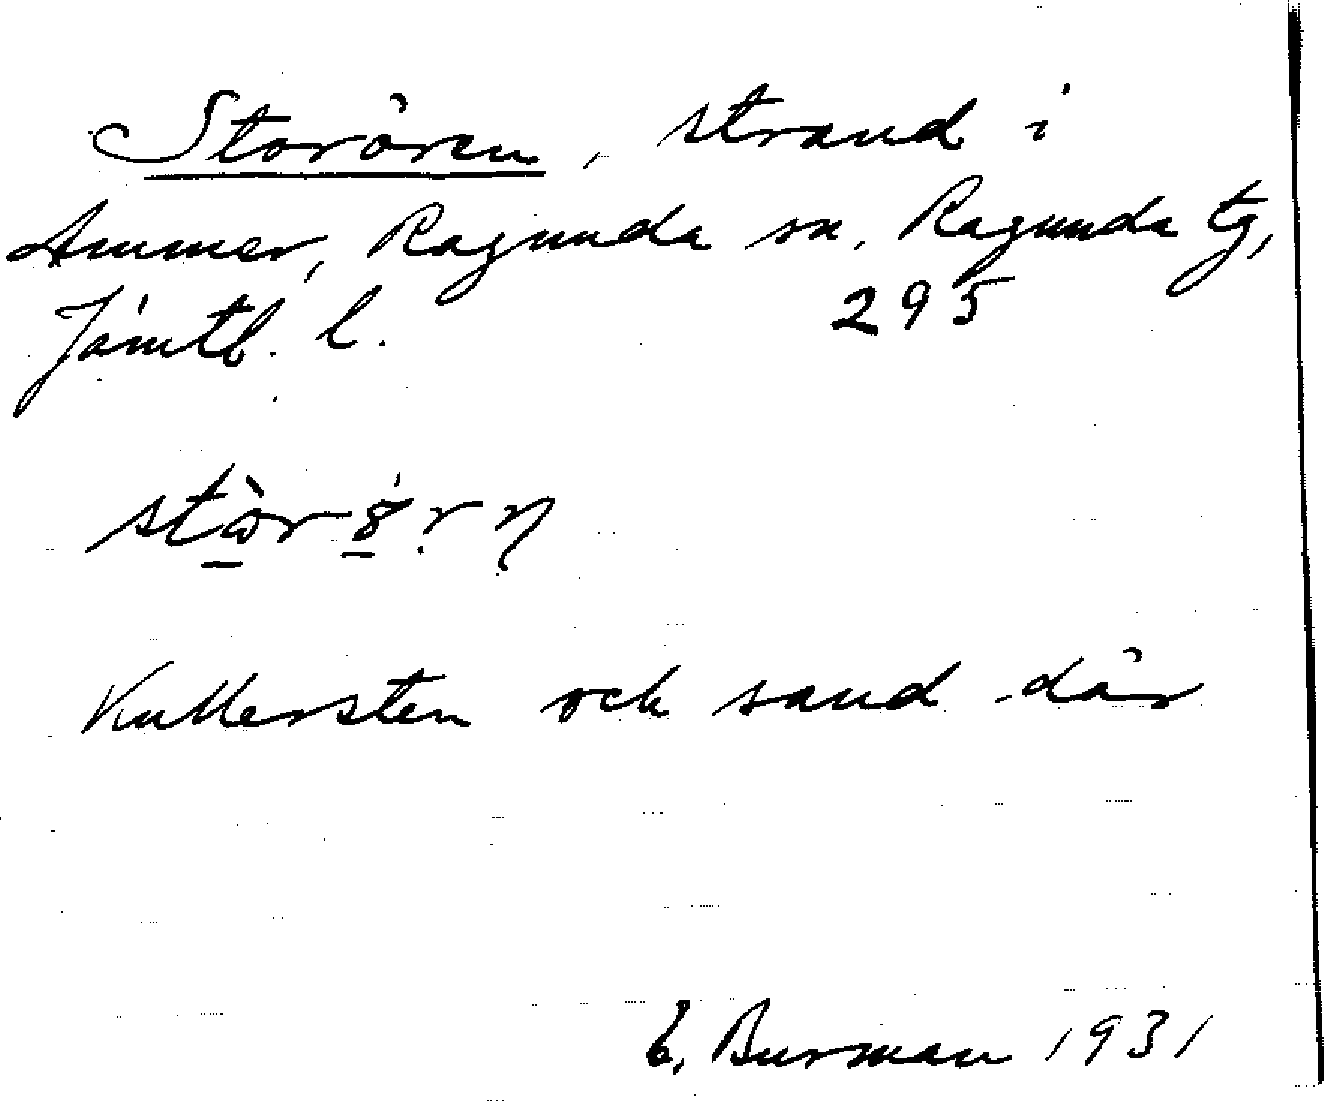 Storören, strand i
Ammer, Ragunda sn. Ragunda tg,
Jämtl. l. 295
Kullersten och sand där
E. Burman 1931